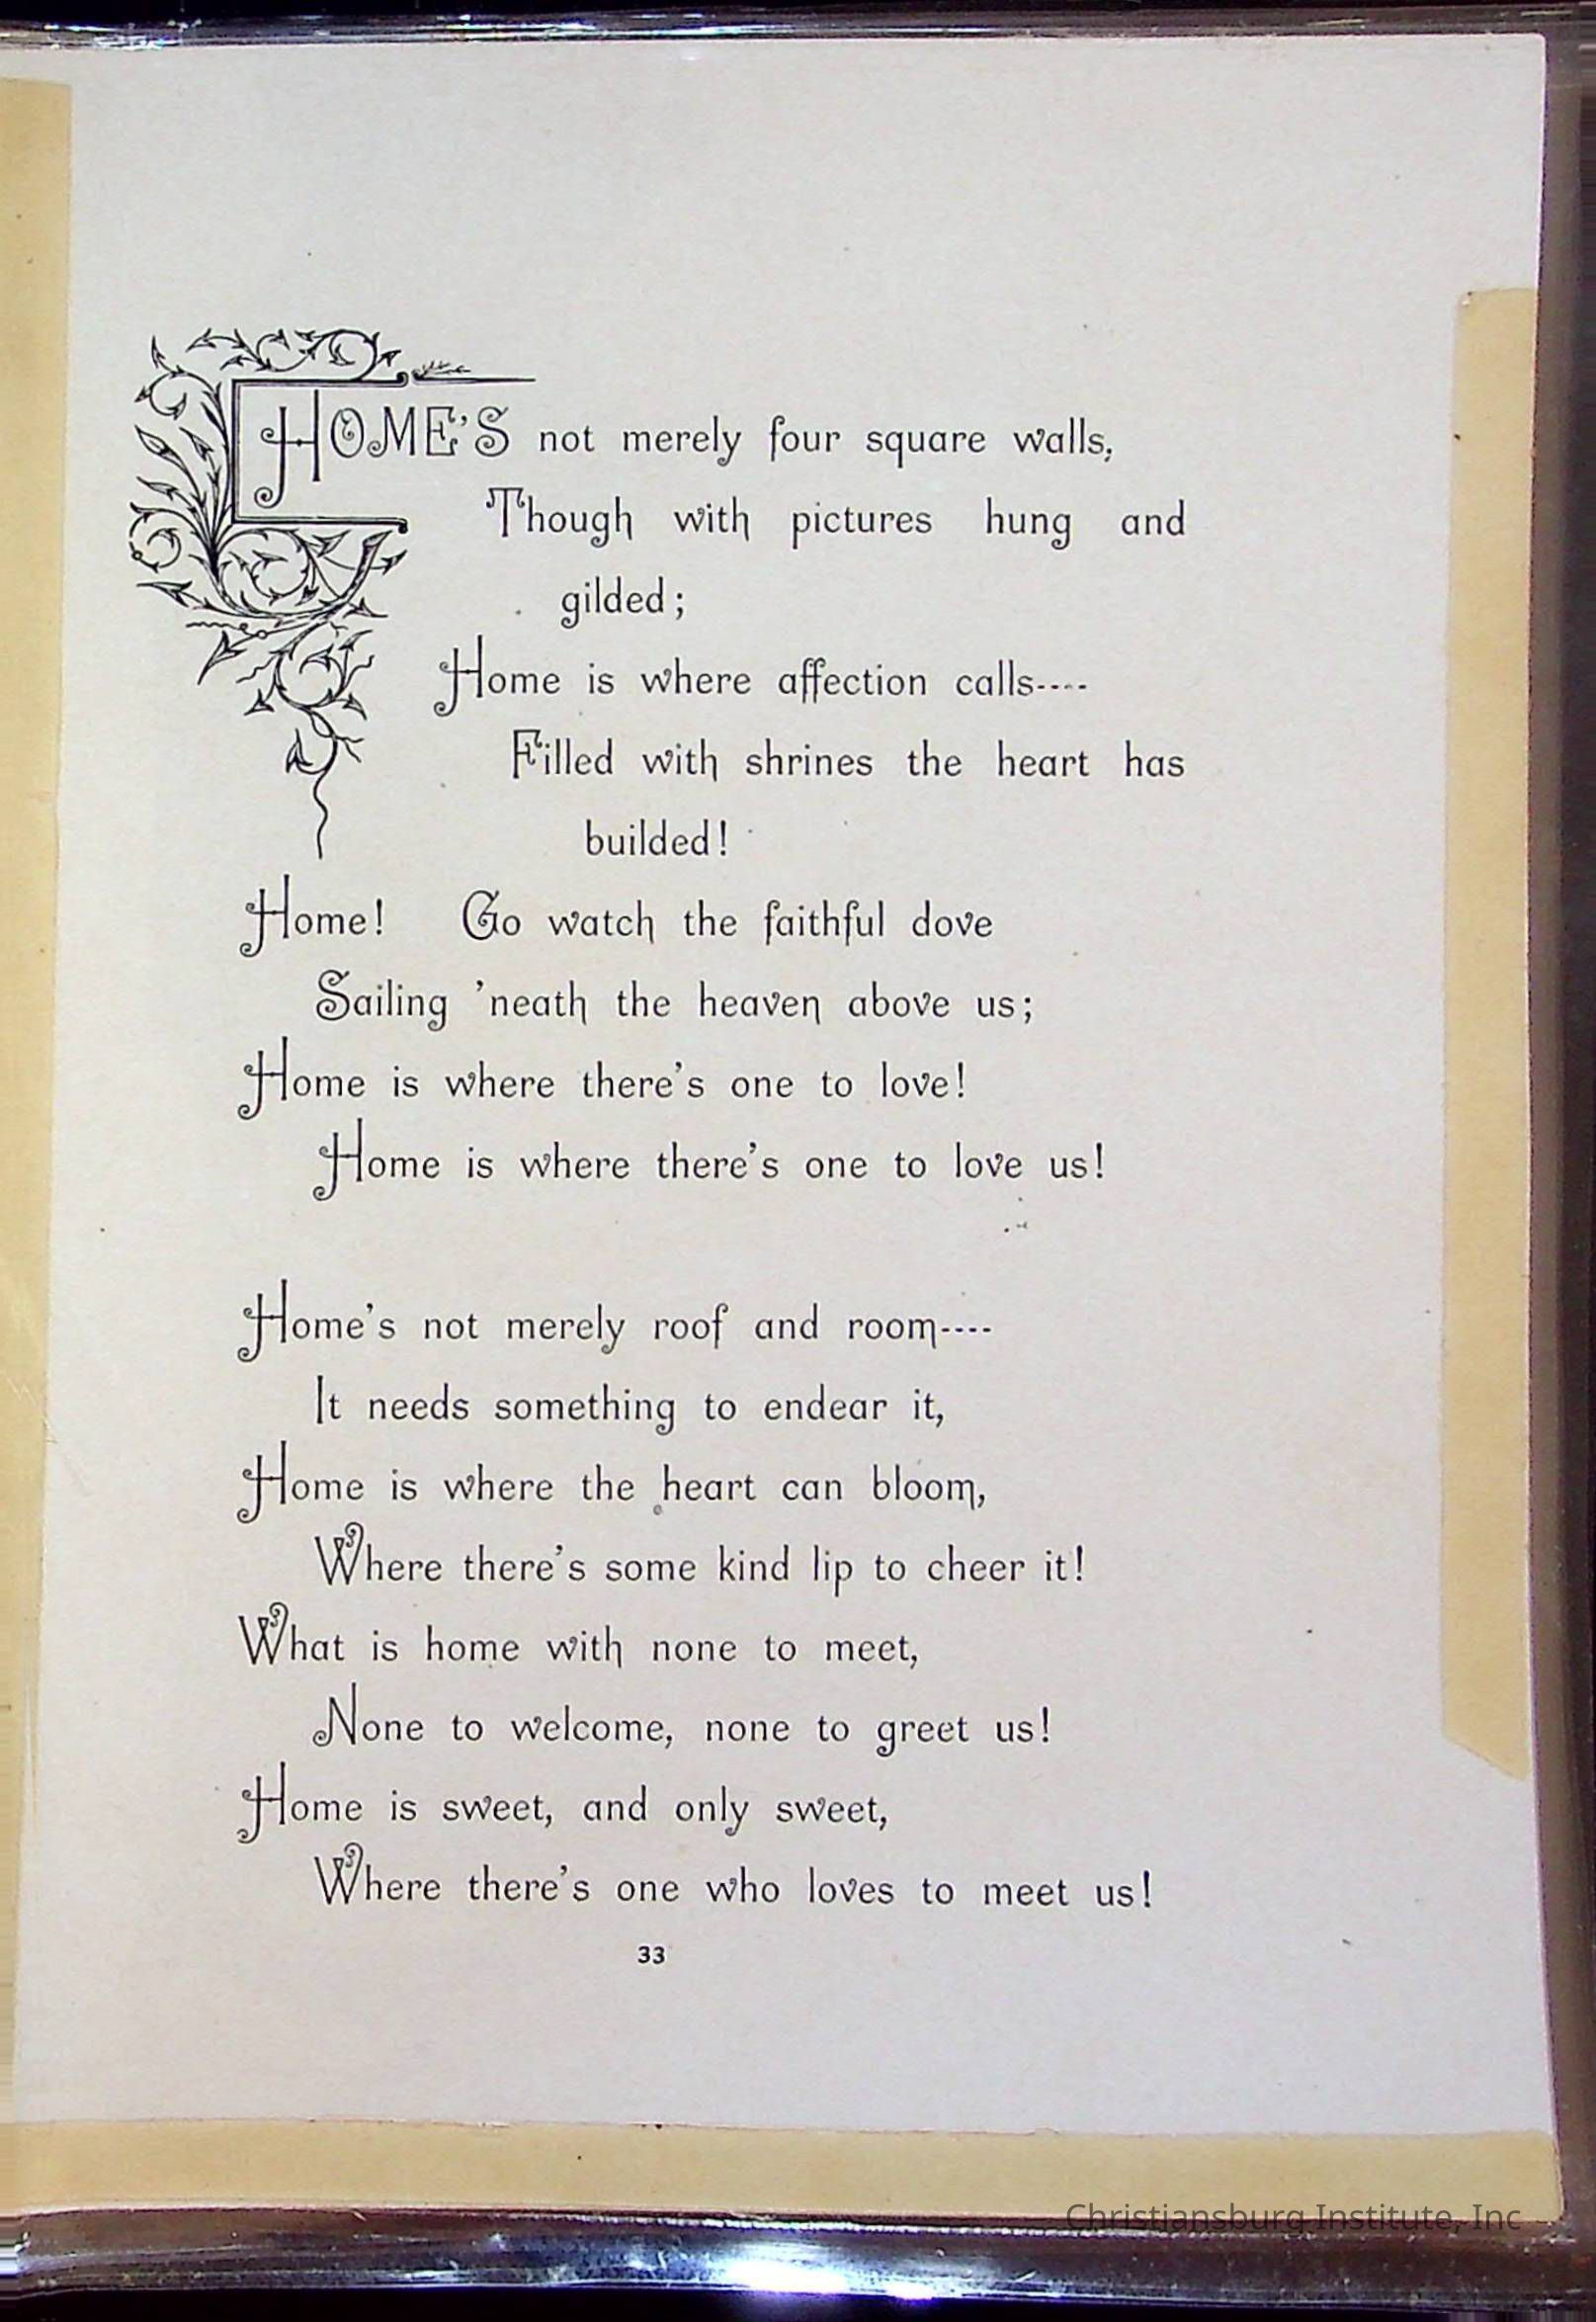 HOME'S not merely four square walls,
Though with pictures hung and
gilded;
Home is where affection calls----
Filled with shrines the heart has
builded!
Home! Go watch the faithful dove
Sailing 'neath the heaven above us;
Home is where there's one to love!
Home is where there's one to love us!
Home's not merely roof and room----
It needs something to endear it,
Home is where the heart can bloom,
Where there's some kind lip to cheer it!
What is home with none to meet,
None to welcome, none to greet us!
Home is sweet, and only sweet,
Where there's one who loves to meet us!
33
Christiansburg Institute, Inc